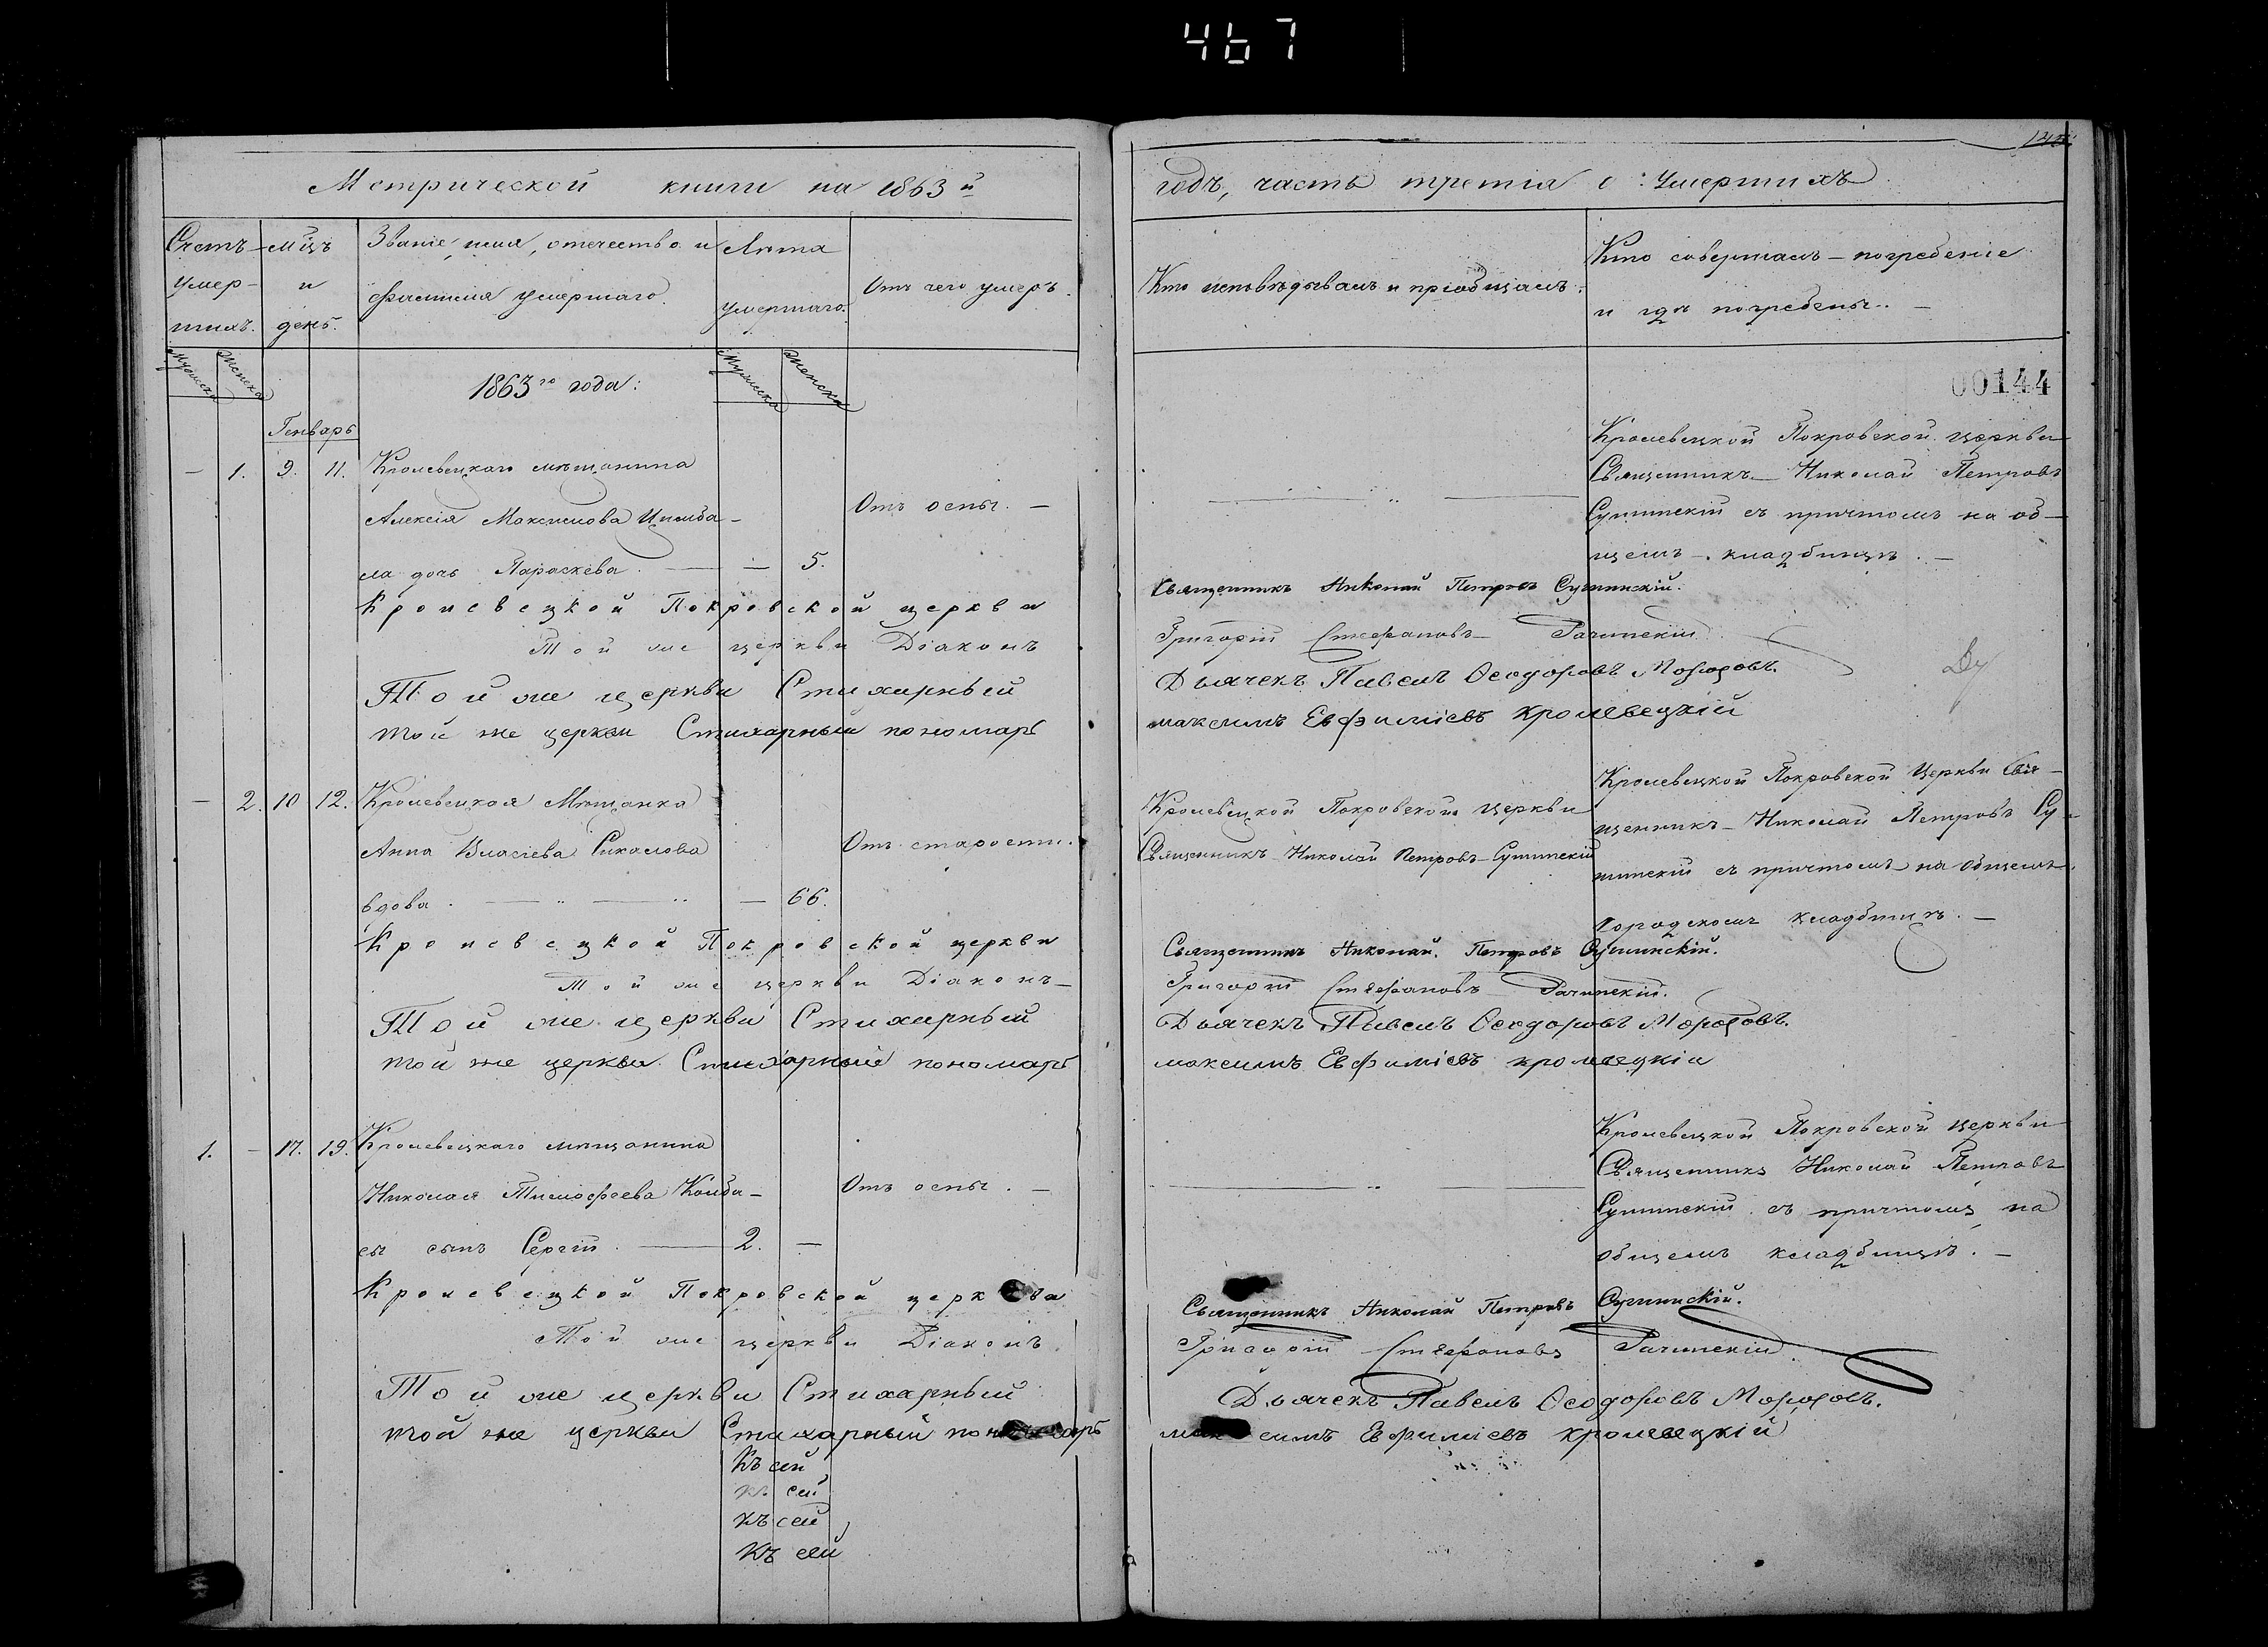 467
Метрической книги на 1863й
Счетъ умер-шихъ.
Мцъ и день.
Званіе, имя, отчество и фамилія умершаго.
Лѣта умершаго.
Отъ чего умеръ.
Мужеска
Женска
Мужеска
Женска
1863го года:
Генварь
— 1. 9. 11. Кролевецкаго мѣщанина
Алексія Максимова Цимба-
Отъ оспы. —
ла дочь Параскева. — — 5.
Кролевецкой Покровской церкви
Той же церкви Діаконъ
Той же церкви Стихарный
той же церкви Стихарный пономарь
— 2. 10 12. Кролевецкая Мѣщанка
Анна Власіева
Отъ старости.
вдова. — — — 66.
Кролевецкой Покровской церкви
Той же церкви Діаконъ
Той же церкви Стихарный
той же церкви Стихарный пономарь
1. — 17. 19. Кролевецкаго мѣщанина
Николая Тимофеева Колба-
Отъ оспы. —
сы сынъ Сергій. — 2. —
Кролевецкой Покровской церкви
Той же церкви Діаконъ
Той же церкви Стихарный
той же церкви Стихарный пономарь
Къ сей
къ сей
къ сей
къ сей
годъ, часть третія о: Умершихъ
Кто исповѣдывалъ и пріобщалъ.
Кто совершалъ погребеніе
и гдѣ погребены. —
00144
Кролевецкой Покровской церкви
Священникъ Николай Петровъ
Сушинскій съ причтомъ на об-
щемъ кладбищѣ. —
Священникъ Николай Петровъ Сушинскій.
Григорій Стефановъ Рачинскій
Дьячекъ Павелъ Ѳеодоровъ Морозовъ.
максимъ Евфиміевъ кролевецкій
Кролевецкой Покровской церкви
Священникъ Николай Петровъ Сушинскій
Кролевецкой Покровской Церкви Свя-
щенникъ Николай Петровъ Су-
шинскій съ причтомъ на общемъ
городскомъ кладбищѣ. —
Священникъ Николай Петровъ Сушинскій.
Григорій Стефановъ Рачинскій.
Дьячекъ Павелъ Ѳеодоровъ Морозовъ.
максимъ Евфиміевъ кролевецкій
Кролевецкой Покровской церкви
Священникъ Николай Петровъ
Сушинскій съ причтомъ на
общемъ кладбищѣ. —
Священникъ Николай Петровъ Сушинскій.
Григорій Стефановъ Рачинскій
Дьячекъ Павелъ Ѳеодоровъ Морозовъ.
максимъ Евфиміевъ кролевецкій